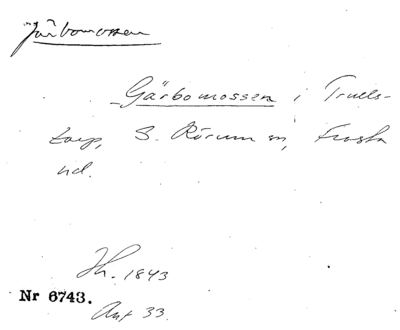 Järbomossen
Gärbomossen i Trulls-
torp, S. Rörum sn, Frosta
hd.
Jh. 1843
Nr 6743.
Ant 33.